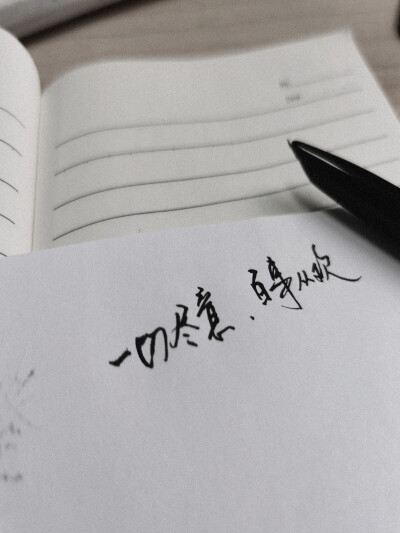 一切尽意，百事从欢